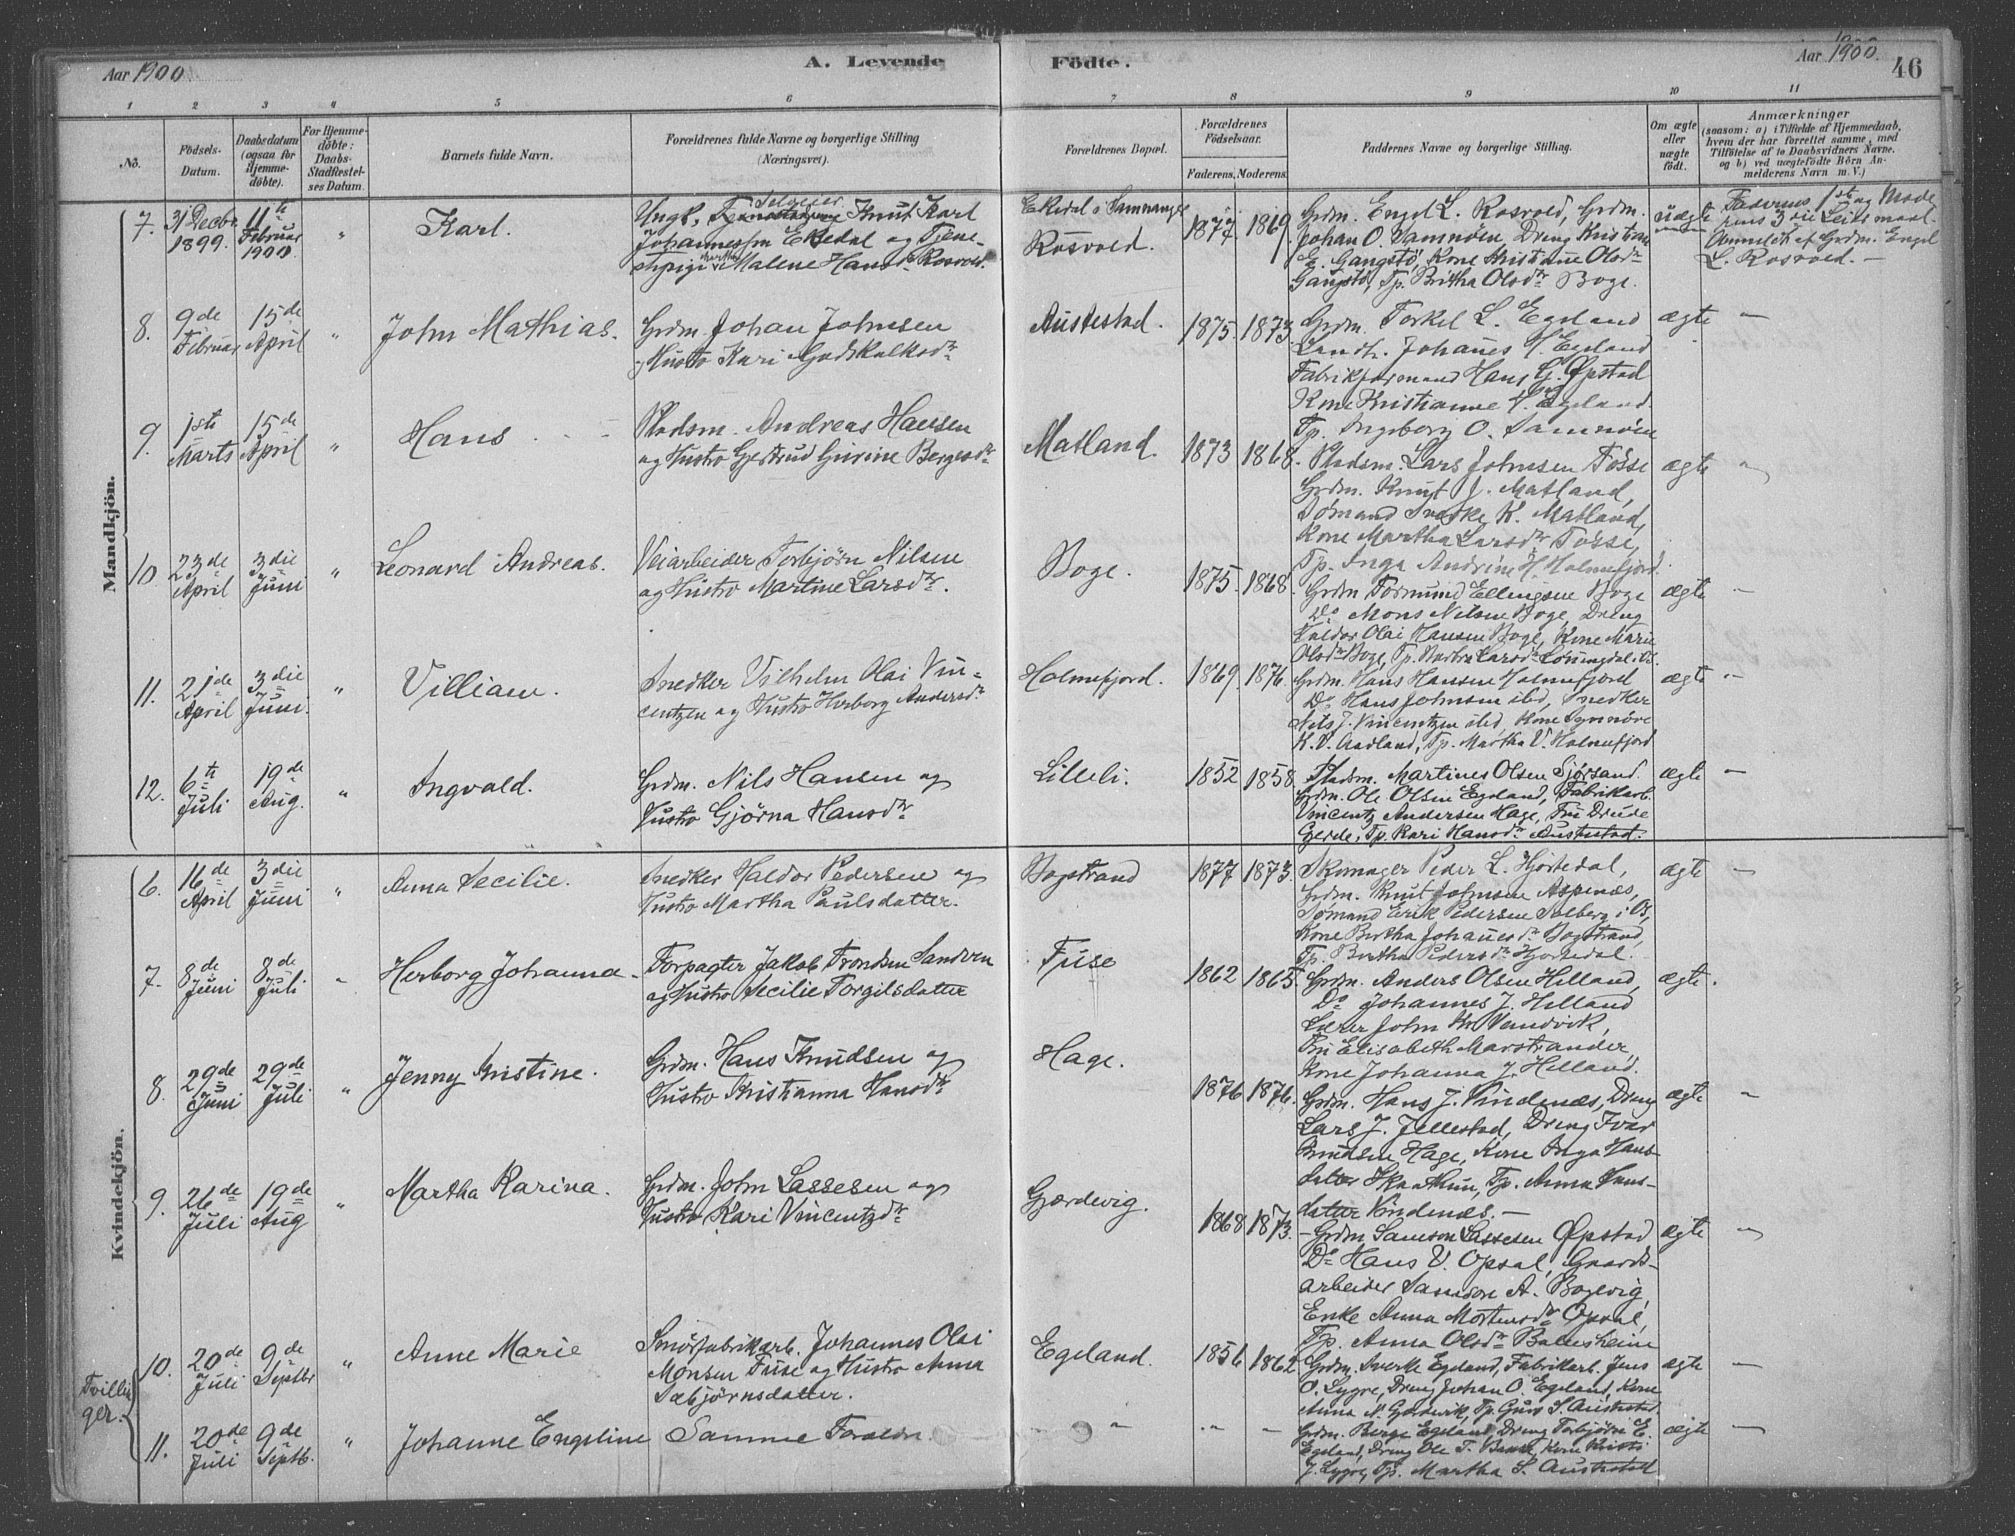 Aar 1900. A. Levende Födte. Aar 1900. 46
1 2 3 4 5 6 7 8 9 10 11
No. Födsels-Datum. Daabsdatum (ogsaa for Hjemmedöbte). For Hjemmedöbte: Daabs-Stadfæstelses Datum. Barnets fulde Navn. Forældrenes fulde Navne og borgerlige Stilling (Næringsvei). Forældrenes Bopæl. Forældrenes Födselsaar. Faderens. Moderens. Faddernes Navne og borgerlige Stilling. Om ægte eller uægte födt. Anmærkninger (saasom: a) i Tilfælde af Hjemmedaab, hvem der har forrettet samme, med Tilföielse af to Daabsvidners Navne, og b) ved uægtefödte Börn Anmelderens Navn m. V.)
Mandkjön.
7. 31 Decbr. 1899. 11te Februar 1900 " Karl. Ungk. Knut Karl
Johannessen Ekedal og Tjene-
stepige Malene Hansdr Rosvold.
Ekedal i Samnanger
Rosvold. 1877. 1869
Grdm. Engel L. Rosvold, Grdm.
Johan O. Samnøen, Dreng Kristian
E. Gangstø, Kone Kristiane Olsdr
Gangstø, Tp. Britha Olsdr Boge.
uægte
Faderens 1ste og Mode
rens 3die Leiermaal.
Anmeldt af Grdm. Engel
L. Rosvold. —
8. 9de Februar 15de April " John Mathias. Grdm. Johan Johnsen
og Hustro Kari Godskalksdr
Austestad. 1875. 1873.
Grdm. Torkel L. Egeland
Landh. Johanes H. Egeland
Fabrikformand Hans G. Øpstad
Kone Kristianne V. Egeland
Tp. Ingeborg O. Samnøen
ægte —
9. 1ste Marts 15de April " Hans. Pladsm. Andreas Hansen
og Hustro Gjertrud Gurine Bergesdr
Matland. 1873 1868.
Pladsm. Lars Johnsen Tøsse
Grdm. Knut J. Matland,
Sømand Sverke K. Matland,
Kone Martha Larsdr Tøsse,
Tp. Inga Andrine H. Holmefjord.
ægte "
10. 23de April 3die Juni " Leonard Andreas. Veiarbeider Torbjørn Nilsen
og Hustro Martine Larsdr.
Boge. 1875. 1868.
Grdm Tormund Ellingsen Boge
Do Mons Nilsen Boge, Dreng
Haldor Olai Hansen Boge, Kone Marie
Olsdr Boge, Tp. Larsdr Lønningdal i Os.
ægte —
11. 21de April 3die Juni. " Villiam. Snedker Vilhelm Olai Vin-
centzen og Hustro Herborg Andersdr
Holmefjord. 1869. 1876.
Grdm. Hans Hansen Holmefjord
Do Hans Johnsen ibd, Snedker
Nils J. Vincentzen ibd, Kone Synnøve
K. V. Aadland, Tp. Martha V. Holmefjord
ægte —
12. 6te Juli 19de Aug. " Ingvald. Grdm. Nils Hansen og
Hustro Gjørna Hansdr
Lilleli. 1852 1858.
Pladsm. Martines Olsen Sjørsand.
Grdm. Ole Olsen Egeland, Fabrikarb.
Vincentz Andersen Hage, Fru Drude
Gerde, Tp. Kari Hansdr Austestad.
ægte —
Kvindekjön.
6. 16de April 3die Juni " Anna Secilie. Snedker Haldor Pedersen og
Hustro Martha Paulsdatter.
Bogstrand 1877 1873.
Skomager Peder L. Hjortedal,
Grdm. Knut Johnsen Aspenæs,
Sømand Erik Pedersen Solberg i Os,
Kone Bertha Johanesdr Bogstrand,
Tp. Bertha Pedersdr Hjortedal.
ægte —
7. 8de Juni 8de Juli " Herborg Johanna. Forpagter Jakob Trondsen Sandven
og Hustro Secilie Torgilsdatter
Fuse 1862 1865.
Grdm. Anders Olsen Helland,
Do Johannes J. Helland
Lærer John Kr Vendvik,
Fru Elisabeth Marstrander,
Kone Johanna J. Helland.
ægte.
8. 29de Juni 29de Juli " Jenny Kristine. Grdm. Hans Knudsen og
Hustro Kristianna Hansdr
Hage. 1876 1876.
Grdm. Hans J. Vindenæs, Dreng
Lars J. Jellestad, Dreng Ivar
Knudsen Hage, Kone Inga Hans-
datter Skaathun, Tp. Anna Hans-
datter Vindenæs. —
ægte "
9. 26de Juli 19de Aug " Martha Karina. Grdm. John Lassesen og
Hustro Kari Vincentzdr
Gjærdevig. 1868 1873.
Grdm Samson Lassesen Øpstad
Do Hans V. Opsal, Gaards-
arbeider Samson A. Bogevig,
Enke Anna Mortensdr Opsal,
Tp. Anna Olsdr Baldersheim
ægte "
Tvillin
ger.
10. 20de Juli 9de Septbr " Anne Marie Smørfabrikarb. Johannes Olai
Monsen Fuse og Hustro Anna
Sæbjørnsdatter.
Egeland. 1856 1862
Grdm. Sverke Egeland, Fabrikarb. Jens
O. Lygre, Dreng Johan O. Egeland, Kone
Anna N. Gjerdevik, Tp. Guro S. Austestad.
ægte —
11. 20de Juli 9de Septb. " Johanne Engeline Samme Forældre " " "
Grdm. Berge Egeland, Dreng Torbjørn E.
Egeland, Dreng Ole T. Kone
J. Lygre, Tp. Martha S. Austestad
ægte —